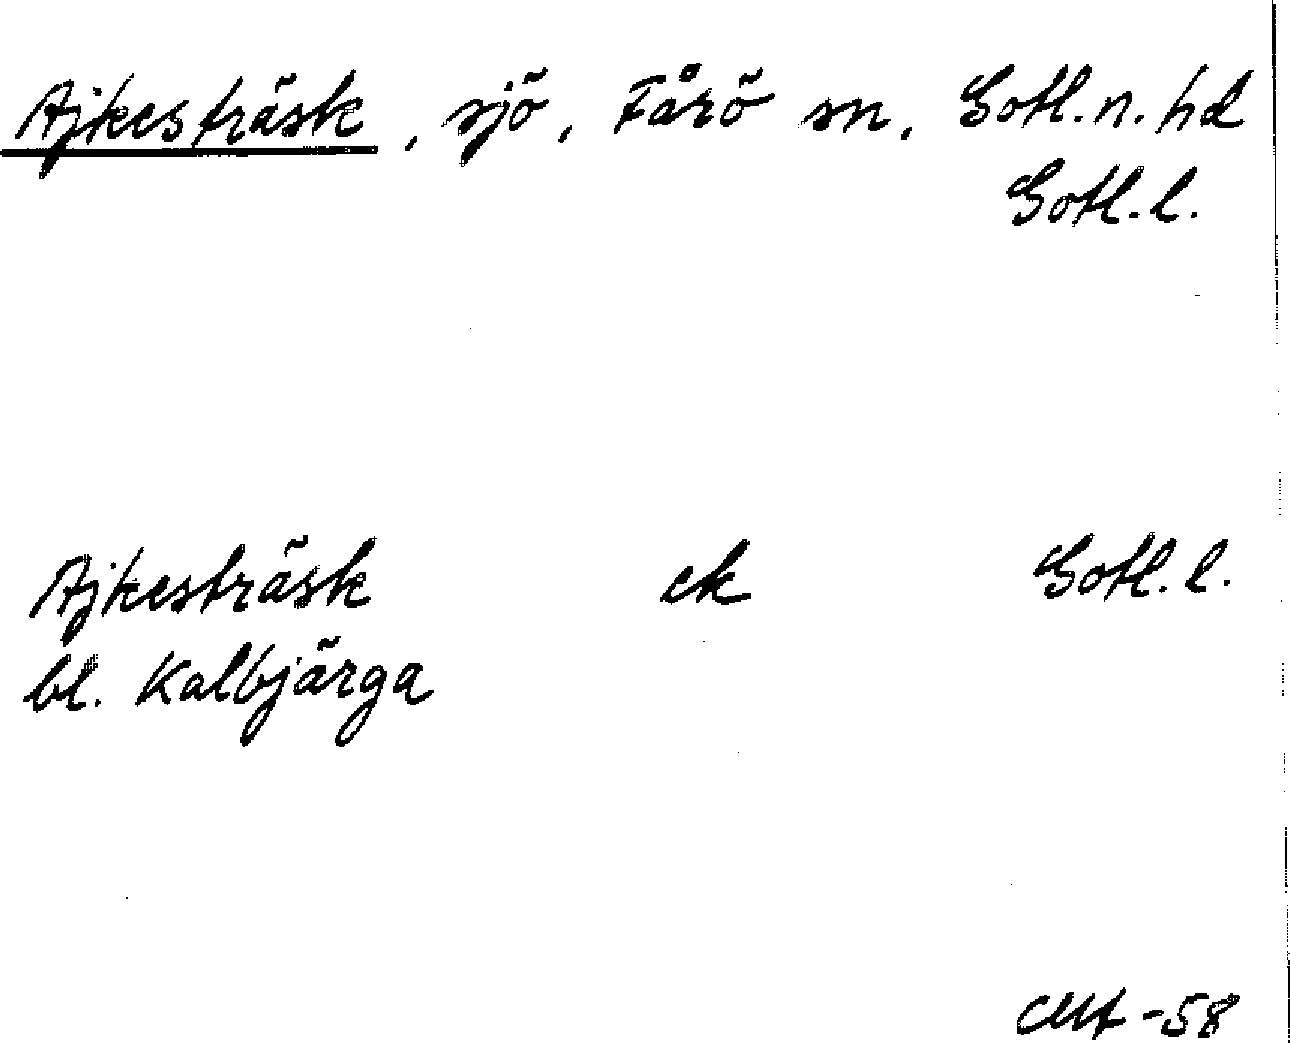 Ajkesträsk, sjö, Fårö sn, Gotl.n.hd
Gotl.l.
Ajkesträsk ek Gotl.l.
bl. Kalbjärga
-58